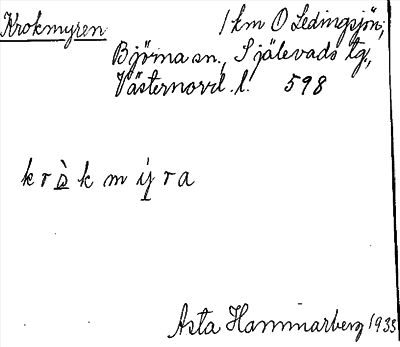 Krokmyren 1 km O Ledingsjön,
Björna sn., Själevads tg.,
Västernorrl. l. 598
kròkmýra
Asta Hammarberg 1933